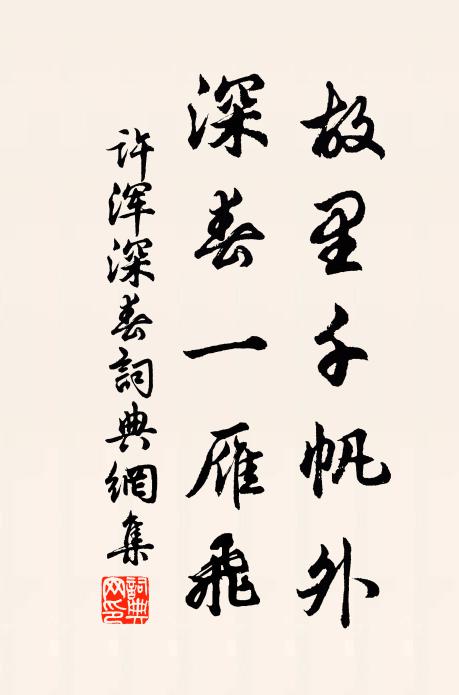 故里千帆外
深春一雁飛
许浑深春詞典網集
詞典网印